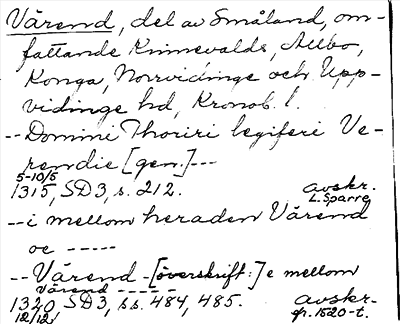 Värend, del av Småland, om-
fattande Kinnevalds, Allbo,
Konga, Norrvidinge och Upp-
vidinge hd, Kronob. l.
-- Domini Thoriri legiferi Ve-
rendie [gen.] ---
5-10/5
1315, SD3, s. 212. avskr.
L. Sparre
-- i mellom heraden Värend
oc -----
-- Värend [överskrift:] e mellom
värend -----
1320 SD3, ss. 484, 485. avskr.
12/12 fr. 1520-t.